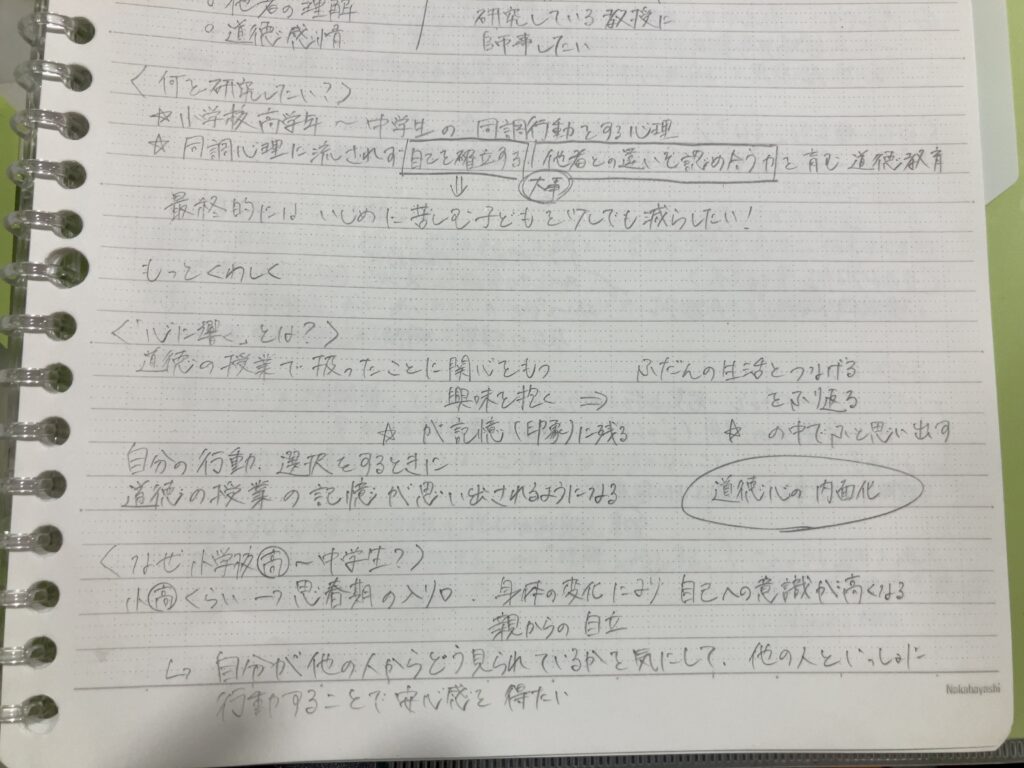 ○ 他者の理解 / 研究している教授に
○ 道徳感情 / 師事したい
〈何を研究したい?〉
☆ 小学校高学年～中学生の同調行動をする心理
☆ 同調心理に流されず 自己を確立する 他者との違いを認め合う力 を育む 道徳教育
⇓ 大事
最終的には いじめに苦しむ子どもを少しでも減らしたい!
もっとくわしく
〈「心に響く」とは?〉
道徳の授業で扱ったことに関心をもつ ふだんの生活とつなげる
興味を抱く ⇒ をふり返る
☆ が記憶(印象)に残る ☆ の中でふと思い出す
自分の行動、選択をするときに
道徳の授業の記憶が思い出されるようになる 道徳心の内面化
〈なぜ小学校高～中学生?〉
小高くらい → 思春期の入り口、身体の変化により自己への意識が高くなる
親からの自立
↳ 自分が他の人からどう見られているかを気にして、他の人といっしょに
行動することで安心感を得たい
Nakabayashi